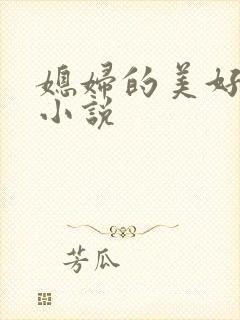 媳婦的美好
小說
芳瓜